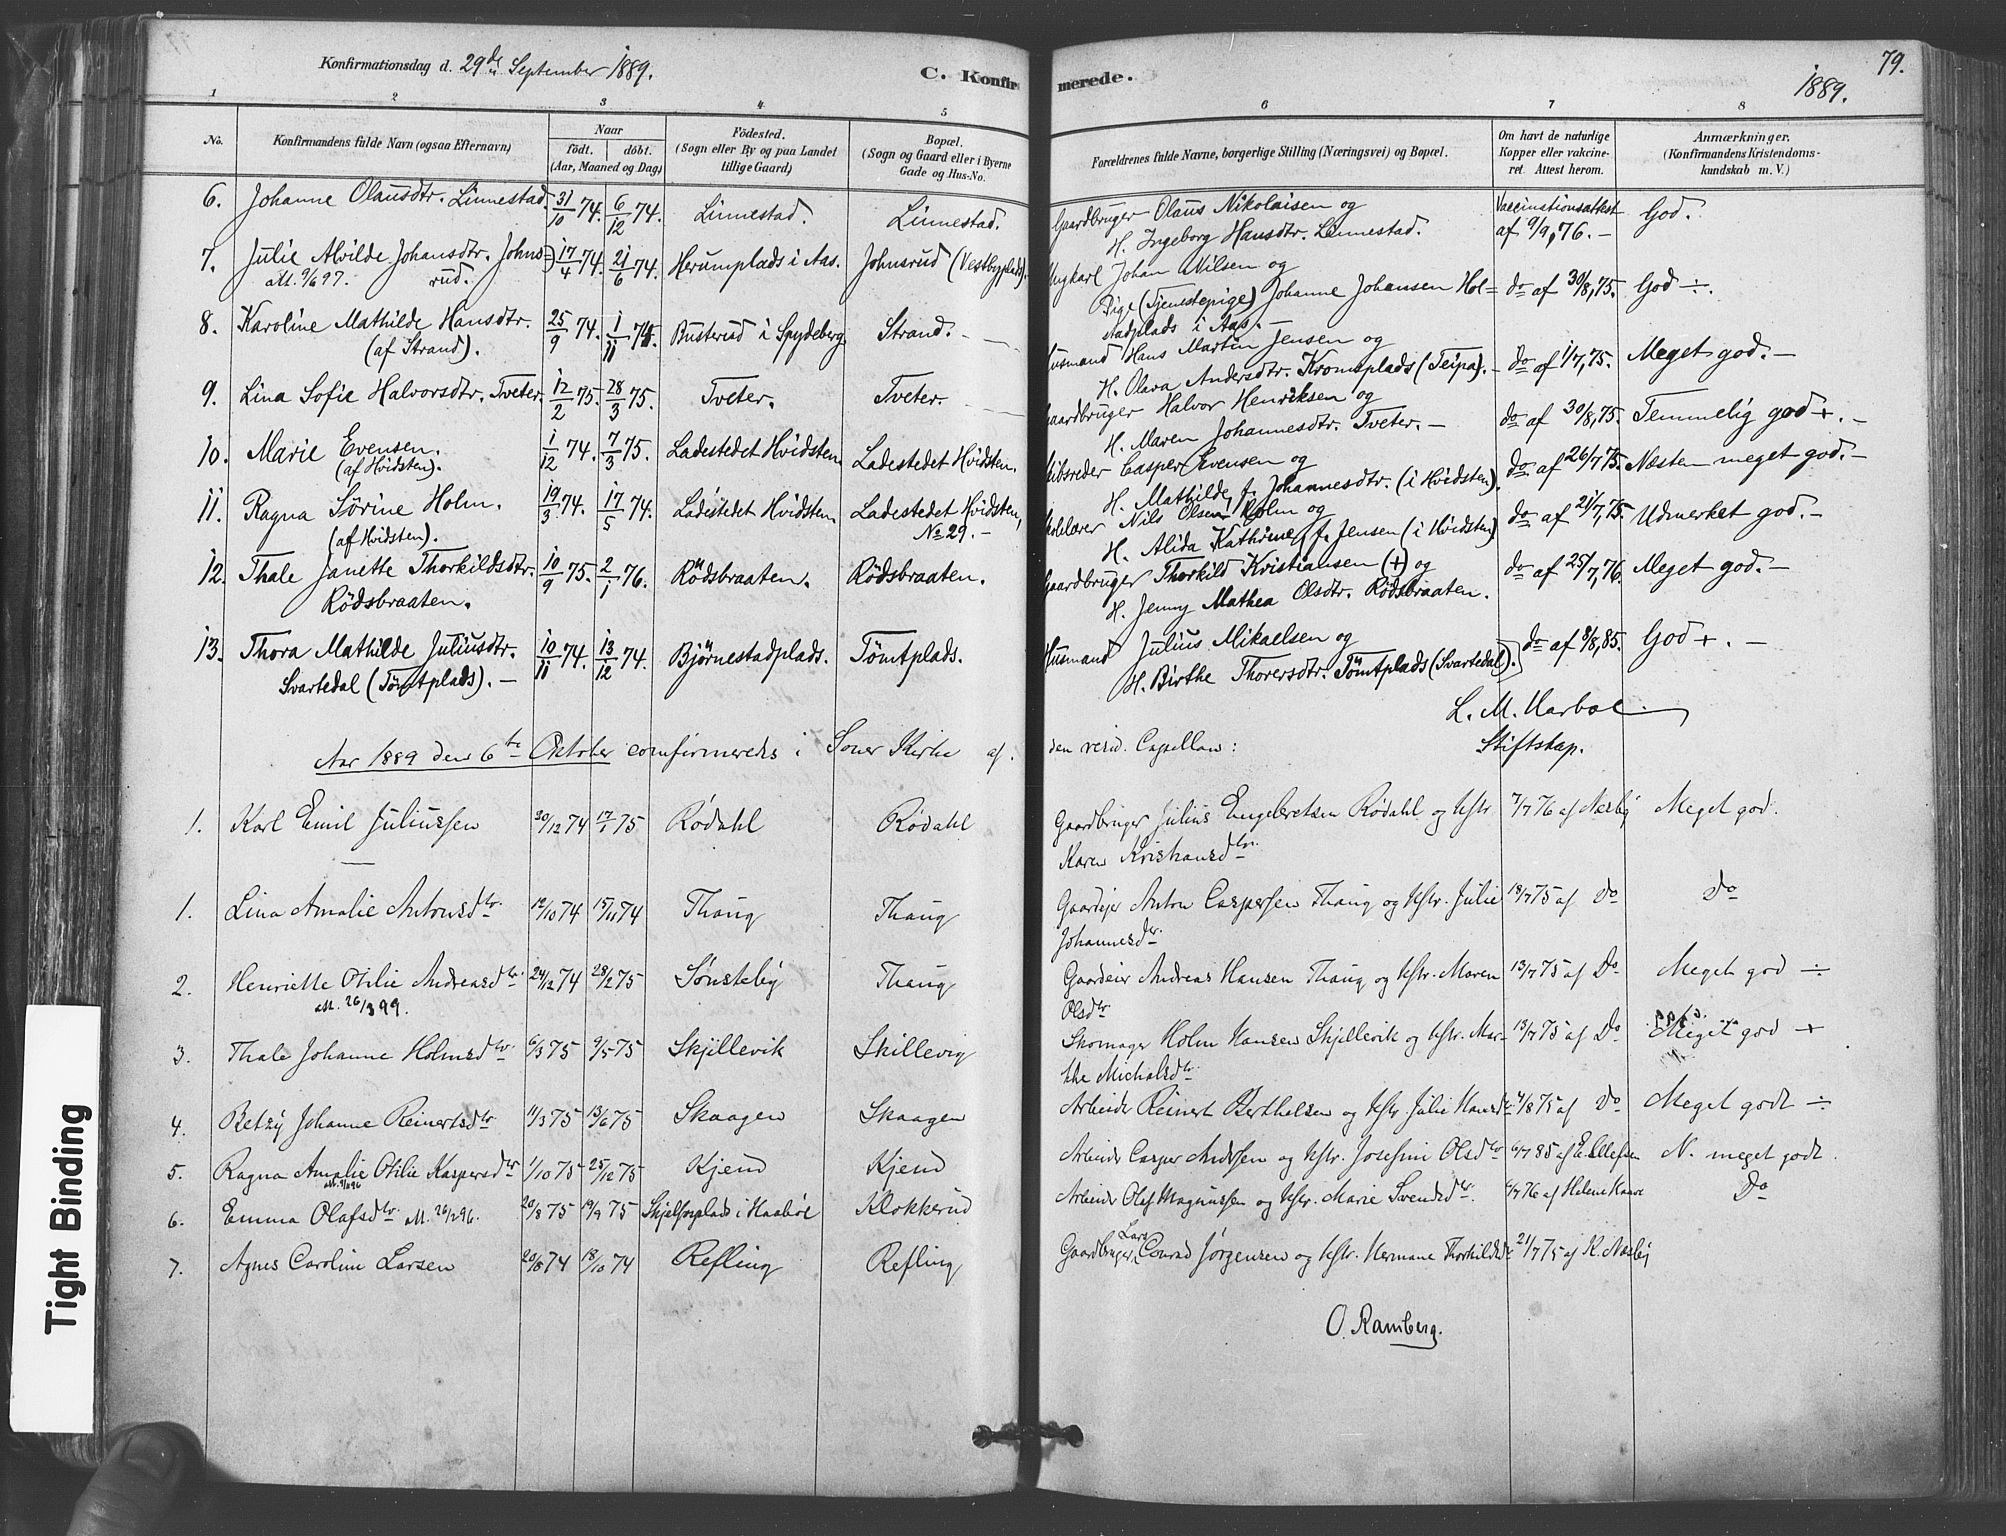 Konfirmationsdag d. 29de September 1889.
C. Konfirmerede.
1889.
79.
1 2 3 4 5 6 7 8
No. Konfirmandens fulde Navn (ogsaa Efternavn) Naar født. døbt. (Aar, Maaned og Dag) Födested. (Sogn eller By og paa Landet tillige Gaard) Bopæl. (Sogn og Gaard eller i Byerne Gade og Hus-No. Forældrenes fulde Navne, borgerlige Stilling (Næringsvei) og Bopæl. Om havt de naturlige Kopper eller vakcineret. Attest herom. Anmærkninger. (Konfirmandens Kristendomskundskab m. V.)
6. Johanne Olausdtr. Linnestad. 31/10 74. 6/12 74. Linnestad. Linnestad. Gaardbruger Olaus Nikolaisen og Vaccinationsattest God.
H. Ingeborg Hansdtr. Linnestad. af 9/9, 76. –
7. Julie Alvilde Johansdtr. Johns= 17/4 74. 21/6 74. Herumplads i Aas. Johnsrud (Vestbyplads). Ungkarl Johan Nilsen og
att. 9/6 97. rud. Pige (Tjenestepige) Johanne Johansen Hol= do af 30/8, 75. God ÷.
stadplads i Aas. –
8. Karoline Mathilde Hansdtr. 25/9 74. 1/11 74. Busterud i Spydeberg. Strand. – Husmand Hans Martin Jensen og
(af Strand). H. Olava Andersdtr. Kromsplads (Teipa). – do af 1/7, 75. Meget god. –
9. Lina Sofie Halvorsdtr. Tveter. 12/2 75. 28/3 75. Tveter. Tveter. Gaardbruger Halvor Henriksen og
H. Maren Johannesdtr. Tveter. – do af 30/8, 75. Temmelig god +. –
10. Marie Evensen. 1/12 74. 7/3 75. Ladestedet Hvidsten. Ladestedet Hvidsten. Skibsreder Casper Evensen og do af 26/7 75. Næsten meget god. –
(af Hvidsten). H. Mathilde, f. Johannesdtr. (i Hvidsten).
11. Ragna Sørine Holm. 19/3 74. 17/5 74. Ladestedet Hvidsten. Ladestedet Hvidsten, Nils Olsen Holm og do af 21/7, 75. Udmerket god. –
(af Hvidsten). No 29. – H. Alida Kathrine, f. Jensen (i Hvidsten)
12. Thale Janette Thorkildsdtr. 10/9 75. 2/1 76. Rödsbraaten. Rödsbraaten. Gaardbruger Thorkild Kristiansen (+) og do af 25/7, 76. Meget god. –
Rödsbraaten. H. Jenny Mathea Olsdtr. Rödsbraaten.
13. Thora Mathilde Juliusdtr. 10/11 74. 13/12 74. Bjørnestadplads. Tömtplads. Husmand Julius Mikaelsen og do af 8/8, 85. God +. –
Svartedal (Tömtplads). – H. Birthe Thorersdtr. Tömtplads (Svartedal).
L. M. Harboe
Stiftskap.
Aar 1889 den 6te Oktober comfirmeredes i Soner Kirke af den resid. Capellan:
1. Karl Emil Juliussen 20/12 74 17/1 75 Rødahl Rødahl Gaardbruger Julius Engebretsen Rødahl og Hstr 7/7 76 af Næsby Meget god.
Karen Kristiansdtr.
1. Lina Amalie Antonsdtr. 12/10 74 15/11 74 Thaug Thaug Gaardejer Anton Caspersen Thaug og Hstr. Julie 18/7 75 af Do Do
Johannesdtr.
2. Henriette Othilie Andreasdtr. 24/12 74 28/2 75 Sønsteby Thaug Gaardeier Andreas Hansen Thaug og Hstr. Maren 13/7 75 af Do Meget god ÷
att. 26/8 99. Olsdtr
3. Thale Johanne Holmsdtr. 6/3 75 9/5 75 Skjillevik Skillevig Skomager Holm Hansen Skjillevik og Hstr. Mar- 13/7 75 af Do Meget god +
the Michalsdtr.
4. Betzy Johanne Reinertsdtr 11/3 75 13/6 75 Skaagen Skaagen Arbeider Reinert Berthelsen og Hstr Julie Hansdtr 4/8 75 af Do Meget godt ÷
5. Ragna Amalie Othilie Kaspersdtr 1/10 75 25/12 75 Kjend Kjend Arbeider Casper Andersen og Hstr. Josefine Olsdtr 6/7 85 af E. Ellefsen N. meget godt.
6. Emma Olafsdtr. att. 26/2 96. 20/8 75 19/9 75 i Haabøl Klokkerud Arbeider Olaf Magnussen og Hstr. Marie Svendsdtr. 4/7 76 af Helene Do
7. Agnes Caroline Larsen 20/8 74 18/10 74 Refling Refling Gaardbruger Lars Conrad Jørgensen og Hstr. Hermane Thorkildsdtr 21/7 75 af K. Næsby
O. Ramberg.
Tight Binding